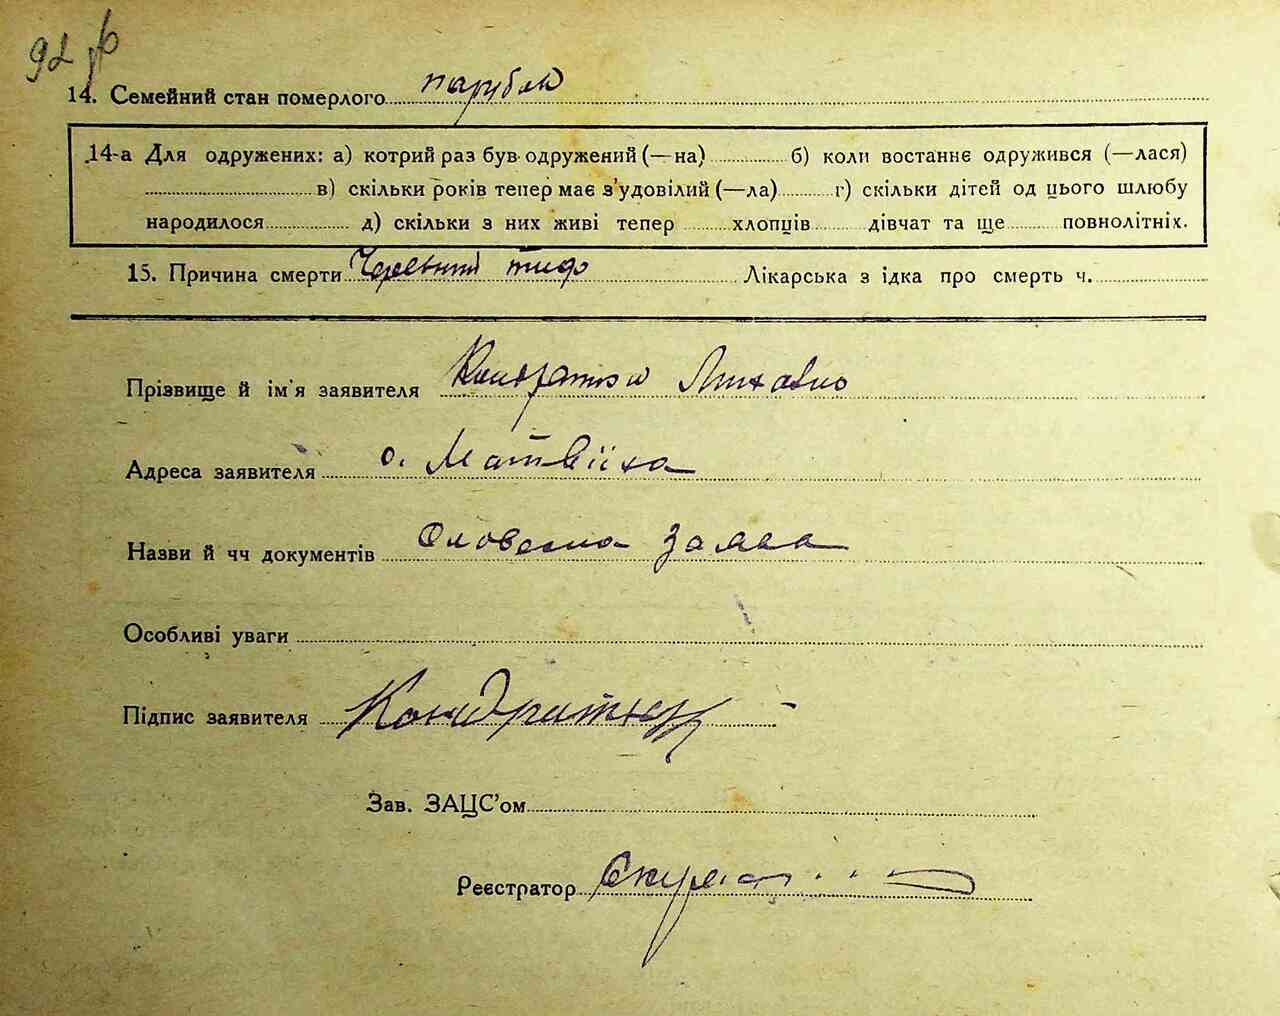 92
14. Семейний стан померлого парубок
14-а Для одружених: а) котрий раз був одружений (—на) б) коли востаннє одружився (—лася)
в) скільки років тепер має з'удовілий (—ла) г) скільки дітей од цього шлюбу
народилося д) скільки з них живі тепер хлопців дівчат та ще повнолітніх.
15. Причина смерти Черевний тиф Лікарська з ідка про смерть ч.
Прізвище й ім'я заявителя Кондратюк
Адреса заявителя с. Матвіїха
Назви й чч документів Словесна заява
Особливі уваги
Підпис заявителя Кондратюк
Зав. ЗАЦС'ом
Реєстратор